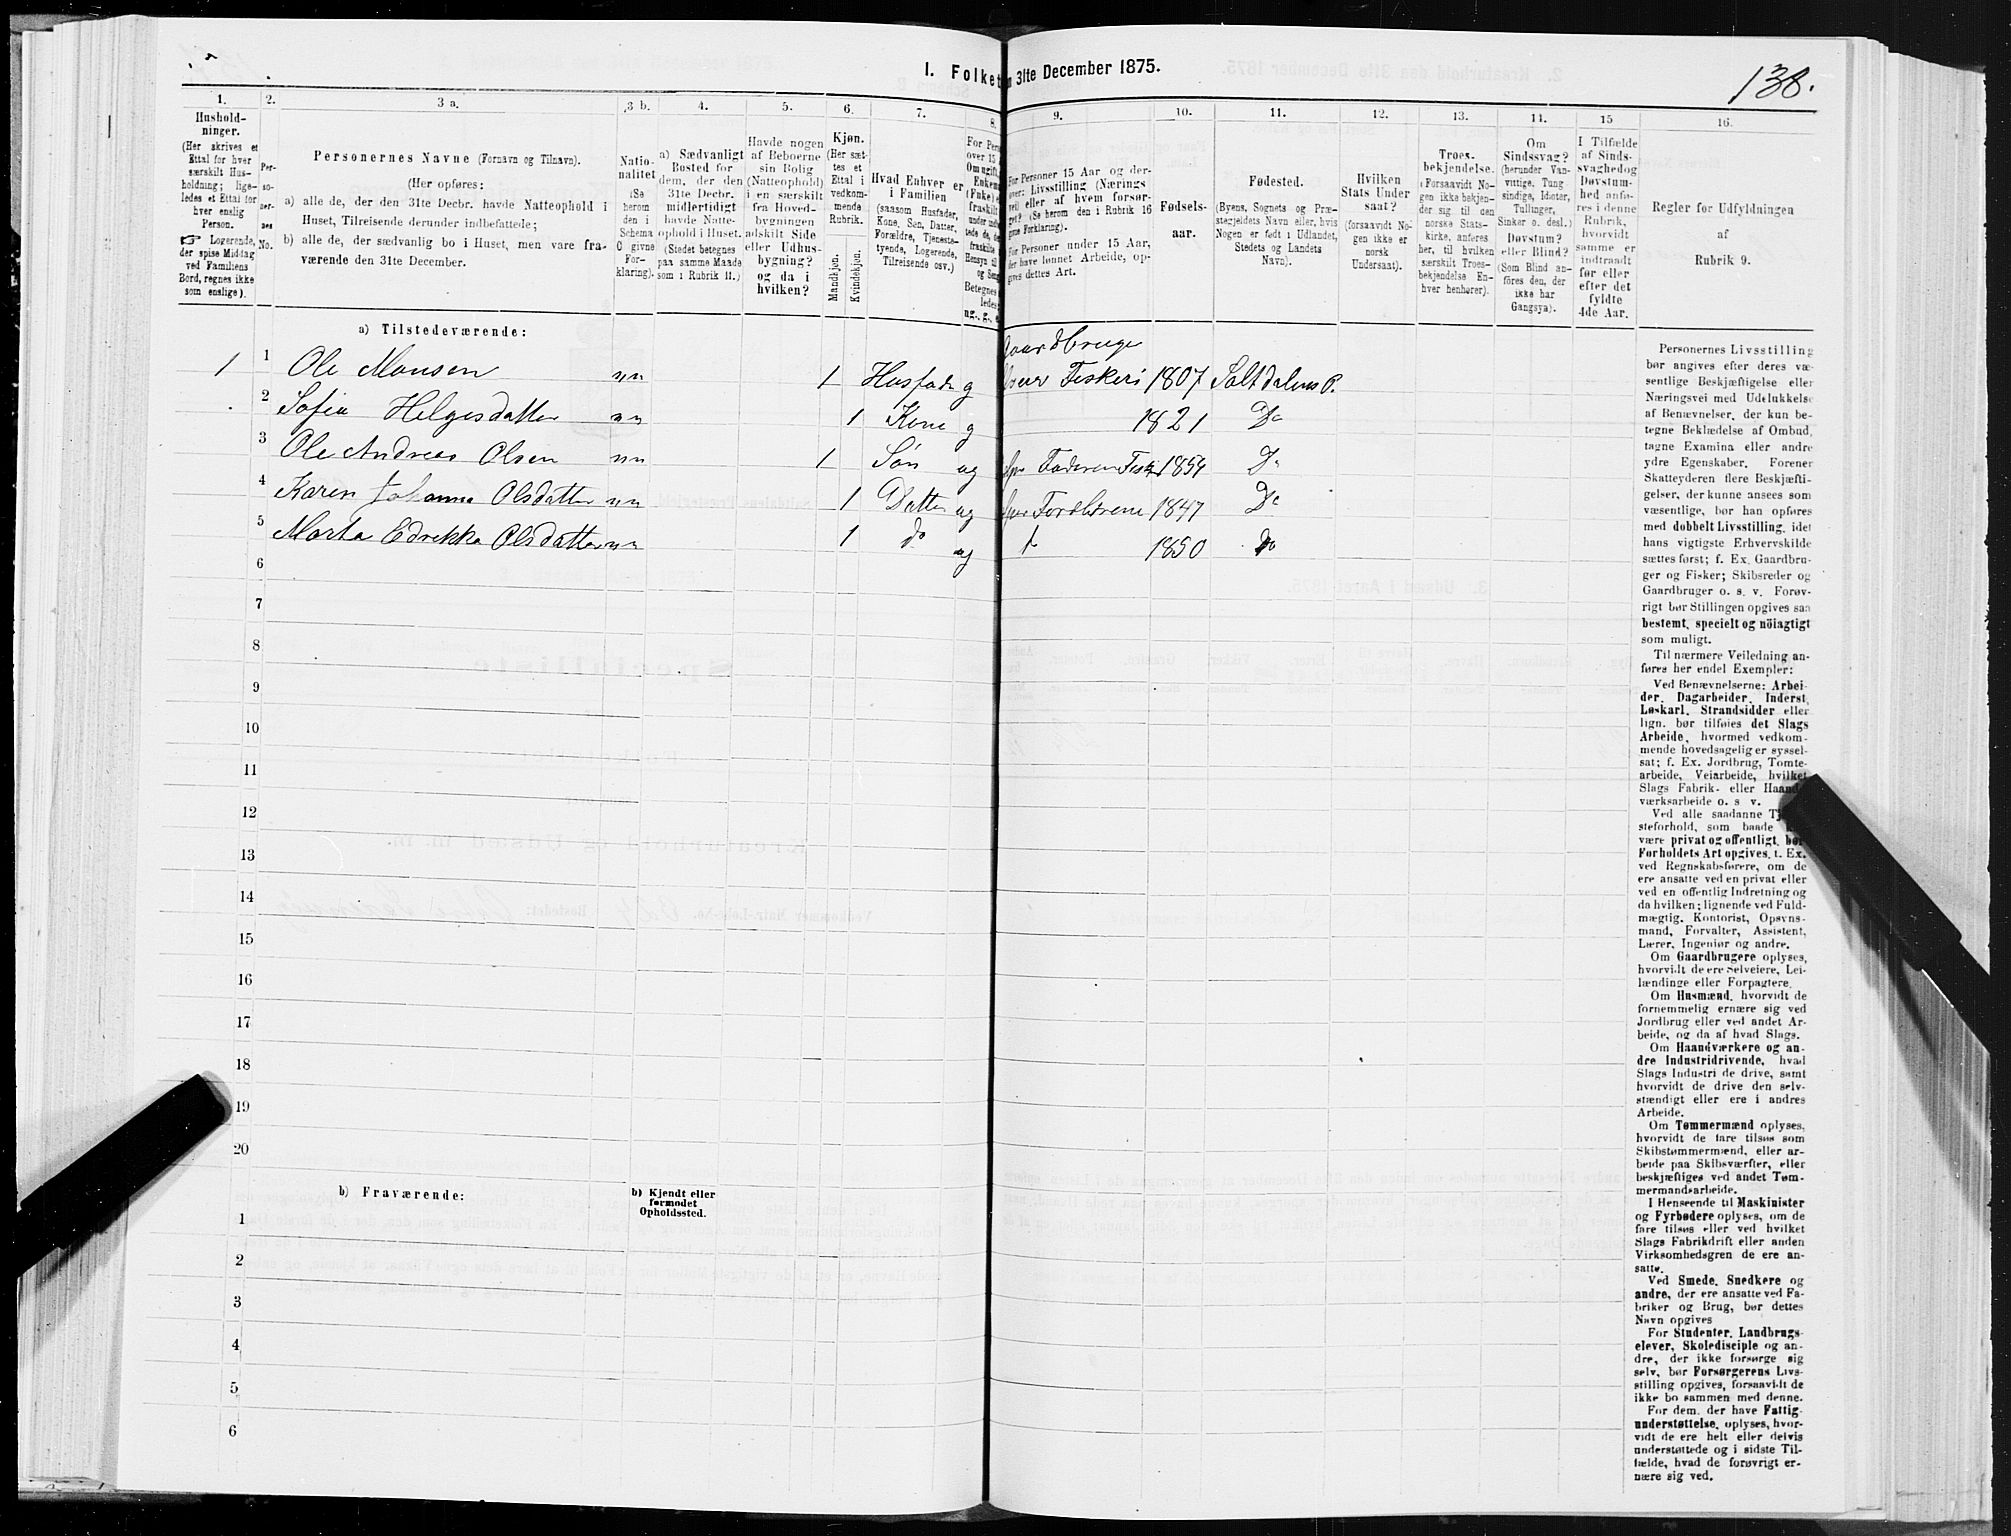 138.
I. Folket
n 31te December 1875.
1.
2.
3 a.
3 b.
4.
5.
6.
7.
8.
9.
10.
11.
12.
13.
14.
15
16.
Hushold-
ninger.
(Her skrives et
Ettal for hver
særskilt Hus-
holdning; lige-
ledes et Ettal for
hver enslig
Person.
☞ Logerende,
der spise Middag
ved Familiens
Bord, regnes ikke
som enslige).
Per-
so-
ner-
nes
No.
Personernes Navne (Fornavn og Tilnavn).
(Her opføres:
a) alle de, der den 31te Decbr. havde Natteophold i
Huset, Tilreisende derunder indbefattede;
b) alle de, der sædvanlig bo i Huset, men vare fra-
værende den 31te December.
Natio-
nalitet
(Se
herom
den i
Schema
O givne
For-
klaring).
a) Sædvanligt
Bosted for
dem, der den
31te Decbr.
midlertidigt
havde Natte-
ophold i Huset.
(Stedet betegnes
paa samme Maade
som i Rubrik 11.)
Havde nogen
af Beboerne
sin Bolig
(Natteophold)
i en særskilt
fra Hoved-
bygningen
adskilt Side
eller Udhus-
bygning?
og da i
hvilken?
Kjøn.
(Her sæt-
tes et
Ettal i
vedkom-
mende
Rubrik.
Mandkjøn.
Kvindekjøn.
Hvad Enhver er
i Familien
(saasom Husfader,
Kone, Søn, Datter,
Forældre, Tjeneste-
tyende, Logerende,
Tilreisende osv.)
For Pers
over 15
Om ugift,
Enkem
(Fake) e
fraskilt
For Personer 15 Aar og der-
over: Livsstilling (Nærings
vei) eller af hvem forsør-
get? (Se herom den i Rubrik 16
givne Forklaring).
For Personer under 15 Aar,
der have lønnet Arbeide, op-
gives dettes Art.
Fødsels-
aar.
Fødested.
(Byens, Sognets og Præ-
stegjeldets Navn eller, hvis
Nogen er født i Udlandet,
Stedets og Landets
Navn).
Hvilken
Stats Under
saat?
(forsaavidt No-
gen ikke er
norsk
Undersaat).
Troes-
bekjendelse.
(Forsaavidt No-
gen ikke bekjen-
der sig til den
norske Stats-
kirke, anføres
her, til hvilken
særskilt Troes-
bekjendelse En-
hver henhører).
Om
Sindssvag?
(herunder Van-
vittige, Tung
sindige, Idioter,
Tullinger,
Sinker o. desl.)
Døvstum?
eller Blind?
(Som Blind an-
føres den, der
ikke har
Gangsyn).
I Tilfælde
af Sinds-
svaghed og
Døvstum-
hed anfø-
res i denne
Rubrik,
hvorvidt
samme er
indtraadt
før eller
efter det
fyldte
4de Aar.
Regler for Udfyldningen
af
Rubrik 9.
a) Tilstedeværende:
Gaardbruge
1 1 Ole Monsen nn 1 Husfade g Fiskeri 1807 Saltdalens P.
2 Sofia Helgesdatter nn 1 Kone g 1821 Do
3 Ole Andreas Olsen nn 1 Søn ug Faderen 1854 Do
4 Karen Johanna Olsdatter nn 1 Datter ug 1847 Do
5 Marta Edrekka Olsdatter nn 1 do ug 1850 Do
6
7
8
9
10
11
12
13
14
15
16
17
18
19
20
b) Fraværende:
b) Kjendt eller
formodet
Opholdssted.
1
2
3
4
5
6
Personernes Livsstilling
bør angives efter deres væ
sentlige Beskjæftigelse eller
Næringsvei med Udelukkelse
af Benævnelser, der kun be-
tegne Beklædelse af Ombud,
tagne Examina eller andre
ydre Egenskaber. Forener
Skatteyderen flere Beskjæfti-
gelser, der kunne ansees som
væsentlige, bør han opføres
med dobbelt Livsstilling, idet
hans vigtigste Erhvervskilde
sættes først; f. Ex. Gaardbru-
ger og Fisker; Skibsreder og
Gaardbruger o. s. v. Forøv-
rigt bør Stillingen opgives saa
bestemt, specielt og nöiagtigt
som muligt.
Til nærmere Veiledning an-
føres her endel Exempler:
Ved Benævnelserne: Arbei-
der, Dagarbeider, Inderst,
Løskarl, Strandsidder eller
lign. bør tilføies det Slags
Arbeide, hvormed vedkom-
mende hovedsagelig er syssel-
sat; f. Ex. Jordbrug, Tomte-
arbeide, Veiarbeide, hvilket
Slags Fabrik- eller Haand-
værksarbeide o. s v.
Ved alle saadanne Tj
steforhold, som baade
være privat og offentligt, bør
Forholdets Art opgives, f. Ex.
ved Regnskabsførere, om de
ere ansatte ved en privat eller
ved en offentlig Indretning og
da hvilken; lignende ved Fuld-
mægtig, Kontorist, Opsyns-
mand, Forvalter, Assistent,
Lærer, Ingeniør og andre.
Om Gaardbrugere oplyses,
hvorvidt de ere Selveiere, Lei-
lændinge eller Forpagtere.
Om Husmænd, hvorvidt de
fornemmelig ernære sig ved
Jordbrug eller ved andet Ar-
beide, og da af hvad Slags.
Om Haandværkere og an-
dre Industridrivende, hvad
Slags Industri de drive, samt
hvorvidt de drive den selv-
stændigt eller ere i andres
Arbeide.
Om Tømmermænd oplyses,
hvorvidt de fare tilsøs som
Skibstømmermænd, eller ar-
beide paa Skibsværfter, eller
beskjæftiges ved andet Tøm-
mermandsarbeide.
I Henseende til Maskinister
og Fyrbødere oplyses, om de
fare tilsøs eller ved hvilket
Slags Fabrikdrift eller anden
Virksomhedsgren de ere an-
satte.
Ved Smede, Snedkere og
andre, der ere ansatte ved Fa-
briker og Brug, bør dettes
Navn opgives
For Studenter, Landbrugs-
elever, Skoledisciple og an-
dre, der ikke forsørge sig
selv, bør Forsørgerens Livs-
stilling opgives, forsaavidt de
ikke bo sammen med denne.
For dem, der have Fattig-
understøttelse, oplyses, hvor-
vidt de ere helt eller delvis
understøttede og i sidste Til-
fælde, hvad de forøvrigt er-
nære sig ved.